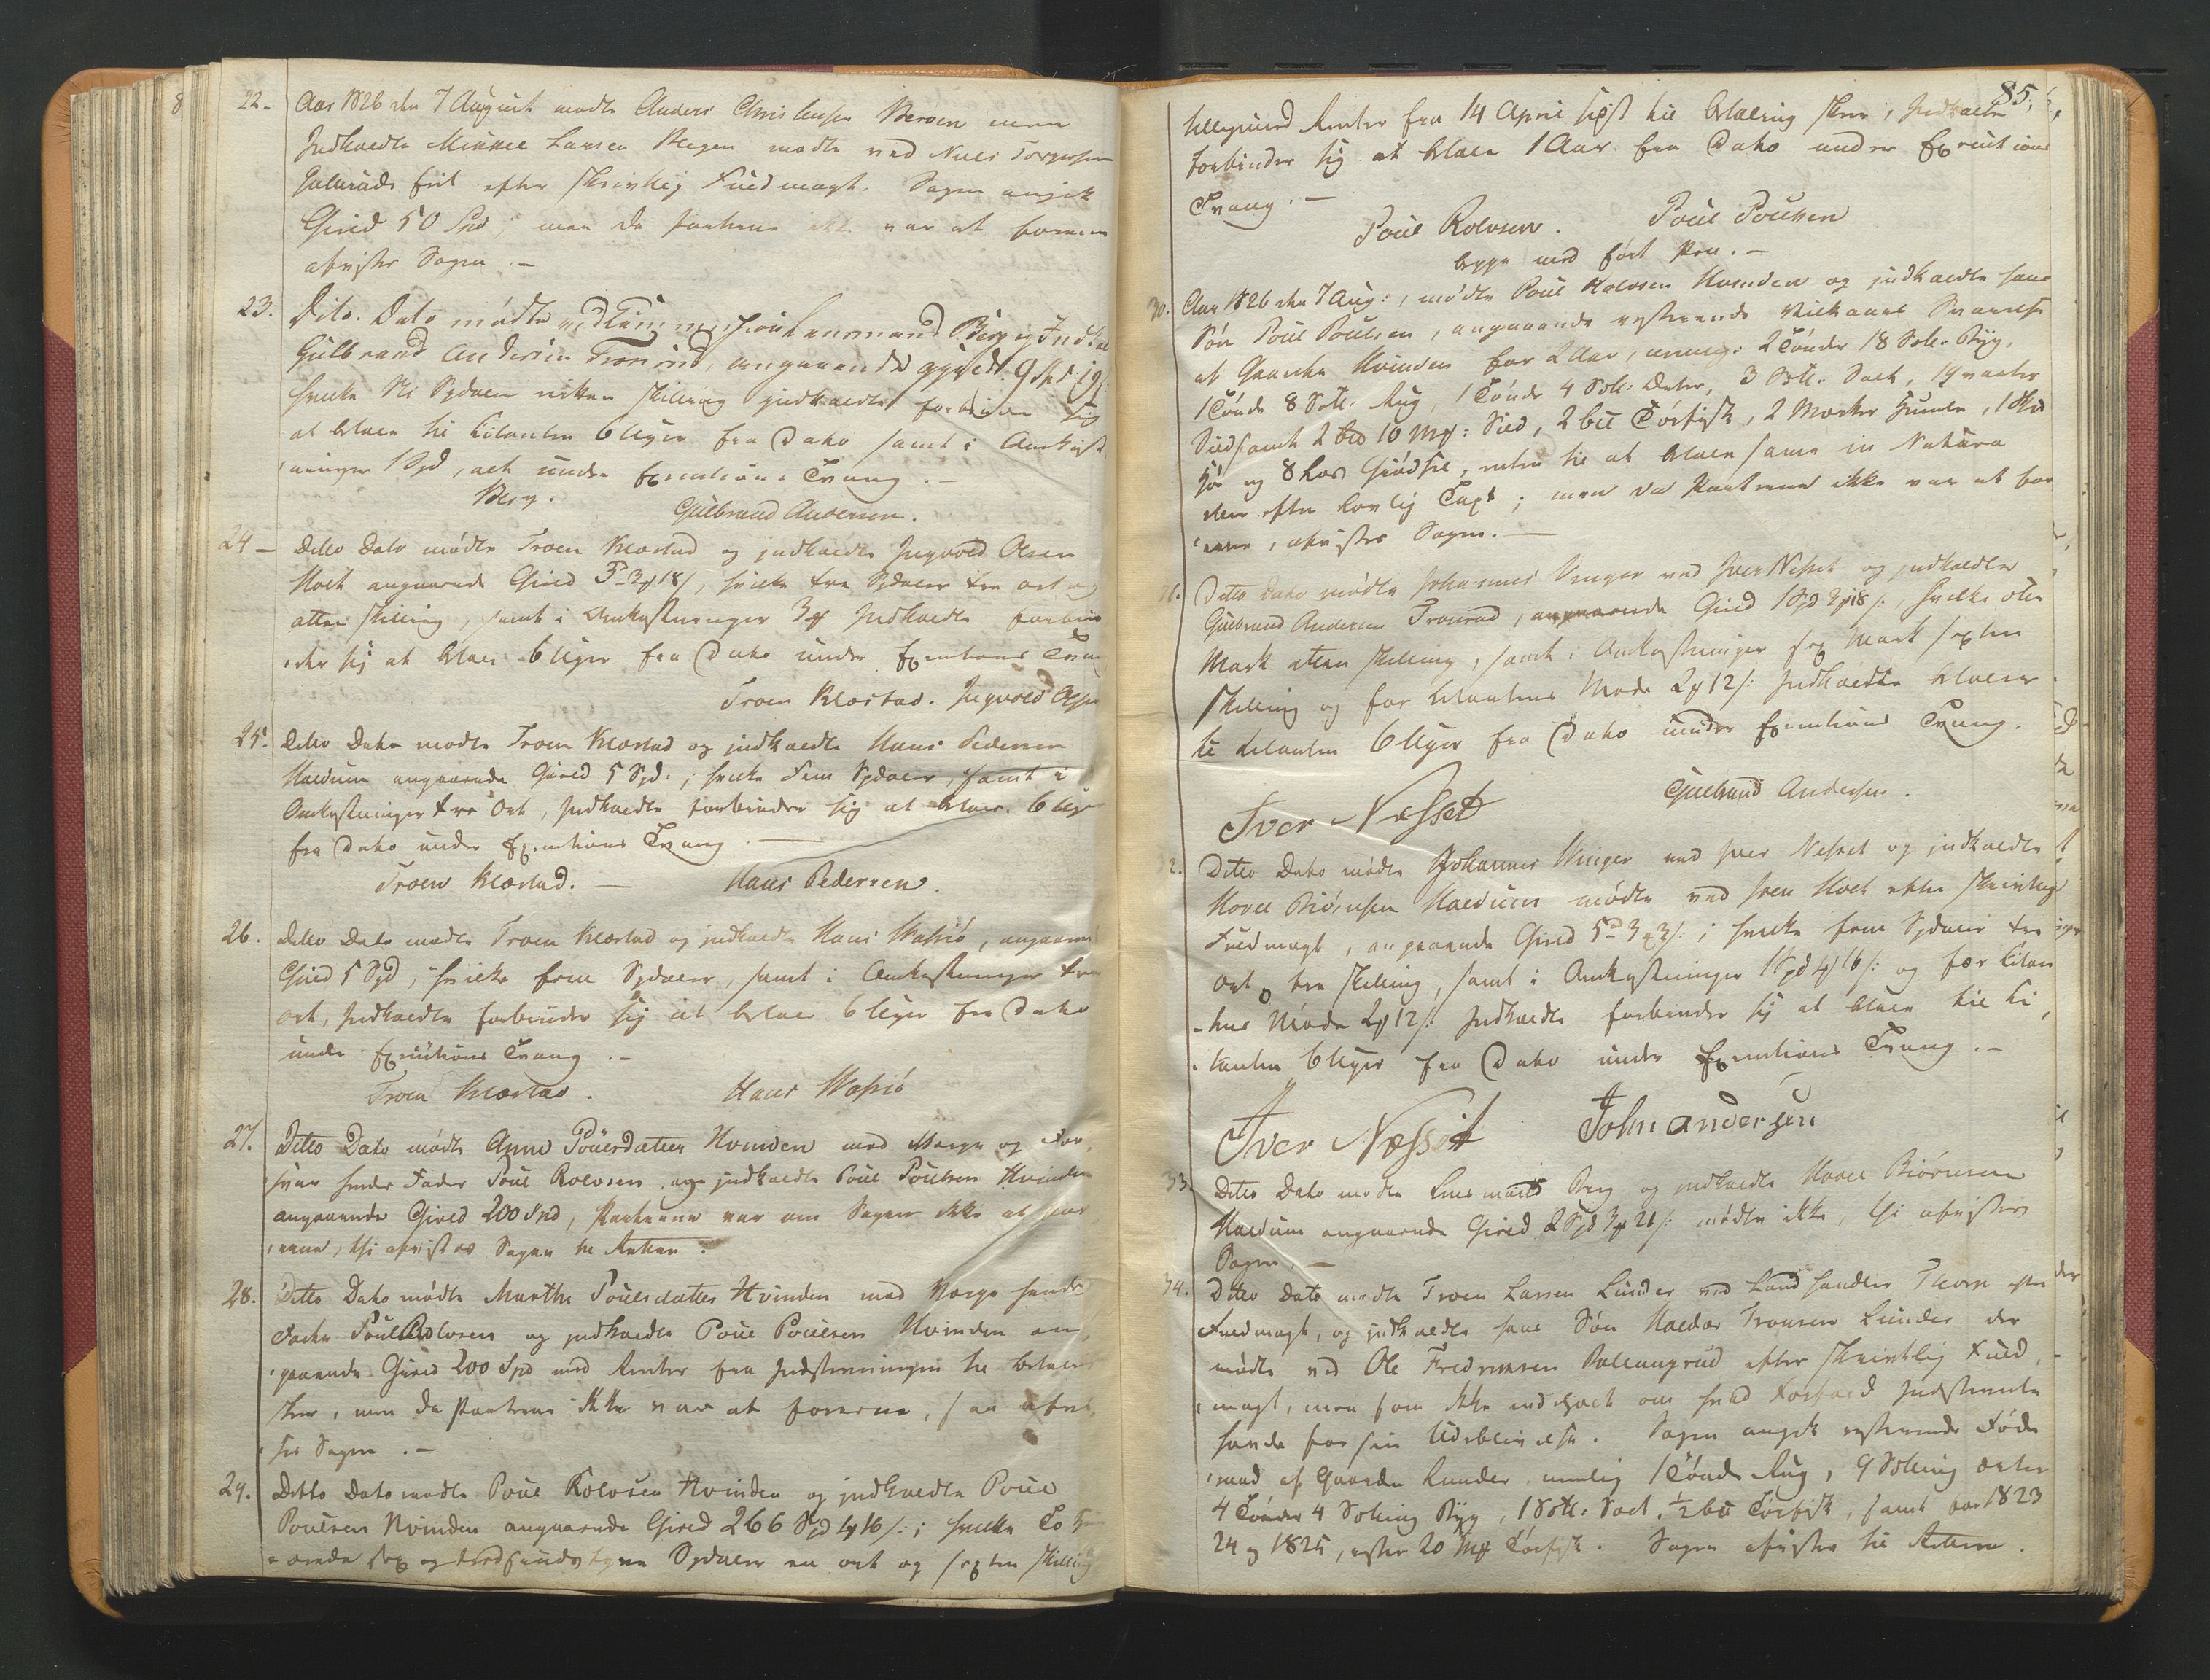 22. Aar 1826 den 7 August mødte Anders Christensen men
Indkaldte Mikkel Larsen mødte ved Niels Torgersen
efter skrivtlig Fuldmagt. Sagen angik
Gield 50 Spd; men da Parterne ikke var at forene
afvistes Sagen.-
23. Dito. Dato mødte Lensmand Berg og Indkal
Gulbrand Andersen Tronrud, angaaende gjield. 9 Spd 19 s:
hvilke Ni Spdaler nitten skilling indkaldte forbinder sig
at betale til Citanten 6 Uger fra Dato samt i Omkost
ninger 1 Spd, alt under Executions Tvang.-
Berg. Gulbrand Andersen.
24 - Ditto Dato mødte Troen Klæstad og indkaldte Ingvold Olsen
angaaende Gield 3- 3 18 s, hvilke tre Spdaler tre ort og
atten skilling, samt i Omkostninger 3 Indkaldte forbin
der sig at betale 6 Uger fra Dato under Executions Tvang
Troen Klæstad. Ingvold Olsen
25. Ditto Dato mødte Troen Klæstad og indkaldte Hans Pedersen
Haldum angaaende Gield 5 Spd:, hvilke Fem Spdaler, samt i
Omkostninger tre Ort, Indkaldte forbinder sig at betale 6 Uger
fra Dato under Executions Tvang.-
Troen Klæstad.- Hans Pedersen.
26. Ditto Dato mødte Troen Klæstad og indkaldte Hans, angaaende
Gield 5 Spd, hvilke fem Spdaler, samt i Omkostninger tre
ort, Indkaldte forbinder sig at betale 6 Uger fra Dato
under Executions Tvang.-
Troen Klæstad. Hans
27. Ditto Dato mødte Anne Poulsdatter Hvinden med Værge og For
svar hendes Fader Poul Rolvsen, og indkaldte Poul Poulsen Hvinden
angaaende Gield 200 Spd, Parterne var om Sagen ikke at for
ene, thi afvistes Sagen til Retten.
28. Ditto Dato mødte Marthe Poulsdatter Hvinden med Værge hendes
Fader Poul Rolvsen og indkaldte Poul Poulsen Hvinden an
gaaende Gield 200 Spd med Renter fra Indstevningen til betaling
skeer, men da Parterne ikke var at forene, saa afvi
stes Sagen.-
29. Ditto Dato mødte Poul Rolvsen Hvinden og indkaldte Poul
Poulsen Hvinden angaaende Gield 266 Spd 1 16 s:; hvilke To Hun
drede sex og tredsindstyve Spdaler en ort og sexten skilling
85.
tilligemed Renter fra 14 April sidst til betaling skeer, Indkaldte
forbinder sig at betale 1 Aar fra Dato under Executions
Tvang.-
Poul Rolvsen. Poul Poulsen
begge med ført Pen.-
30. Aar 1826 den 7 Aug:, mødte Poul Rolvsen Hvinden og indkaldte sin
Søn Poul Poulsen, angaaende resterende Vilkaar
af Gaarden Hvinden for 2 Aar, nemlig: 2 Tønder 18 Sott. Byg,
1 Tønde 8 Sott. Rug, 1 Tønde 4 Sott: 3 Sott. Salt,
samt 2 10 M: Sild, 2 Tørfisk, 2 Marker Humle,
Hø og 8 Las Giødsel, enten til at betale samme in Natura
eller efter lovlig Taxt; men da Parterne ikke var at for
ene, afvistes Sagen.-
31. Ditto Dato mødte Johannes Unger ved Iver Nesset og indkaldte
Gulbrand Andersen Tronrud, angaaende Gield 1 Spd 3 18 s:, hvilke
Mark atten skilling, samt i Omkostninger sex Mark sexten
skilling og for Citantens Møde 2 12 s: Indkaldte betaler
til Citanten 6 Uger fra Dato under Executions Tvang.
Iver Næsset Gulbrand Andersen.
32. Ditto Dato mødte Johannes Unger ved Iver Nesset og indkaldte
Hovel Biørnsen Haldum mødte ved efter skrivtlig
Fuldmagt, angaaende Gield 5 3 3 s:; hvilke fem Spdaler tre
ort og tre skilling, samt i Omkostninger 1 Spd 16 s: og for Citan
tens Møde 2 12 s: Indkaldte forbinder sig at betale til Ci
tanten 6 Uger fra Dato under Executions Tvang.-
Iver Næsset John andersen
33. Ditto Dato mødte Lensmand Berg og indkaldte Hovel Biørnsen
Haldum angaaende Gield 2 Spd 3 21 s: mødte ikke, thi afvistes
Sagen.-
34. Ditto Dato mødte Troen Larsen Lunder ved Landhandler Thorn efter
Fuldmagt, og indkaldte sin Søn Haldor Tronsen Lunder der
mødte ved Ole Fredriksen Sollaugrud efter skrivtlig Fuld
magt, men som ikke om hvad Forfald Indstevnte
havde for sin Udeblivelse. Sagen angik resterende Føde
raad af Gaarden Lunder nemlig 1 Tønde Rug, 9 Solling
4 Tønder 4 Solling Byg, 1 Sott: Salt, ½ Tørfisk, samt for 1823
24 og 1825, rester 20 M Tørfisk. Sagen afvistes til Retten.